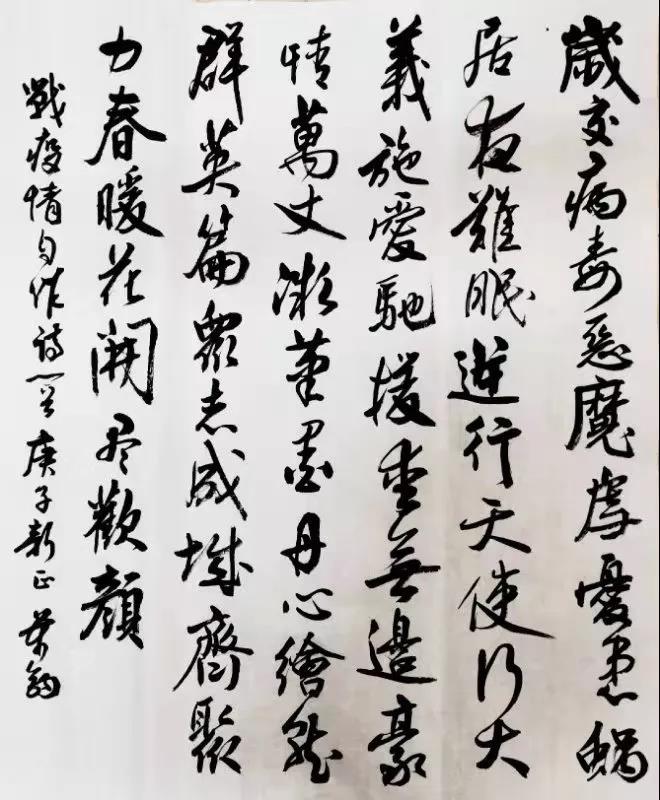 歲交病毒惡魔虐憂患蝸
居夜難眠逆行天使行大
義施愛馳援無邊豪
情萬丈凝筆墨丹心繪就
群英篇眾志成城齊聚
力春暖花開尽歡顏
戰疫情自作詩一首庚子新正